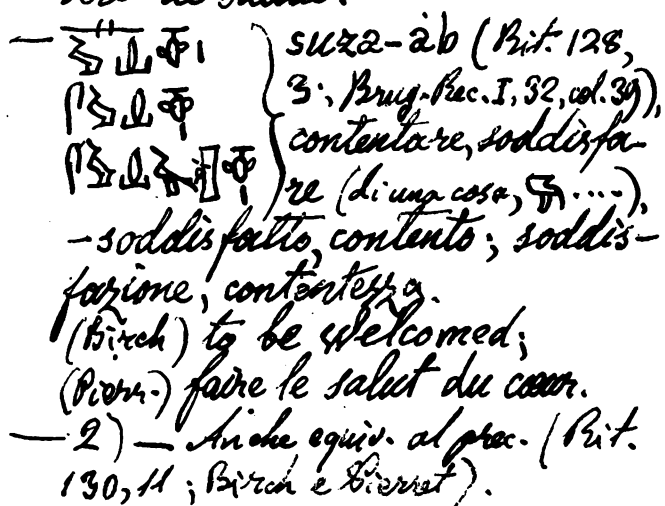 suza-ab (Rit. 128,
3., Brug. Rec. I, 32, col. 39),
contentare, soddisfa-
re (di una cosa, ....),
– soddisfatto, contento; soddis-
fazione, contentezza.
(Birch) to be welcomed;
(Pierr.) faire le salut du cœur.
— 2) — Anche equiv. al prec. (Rit.
130, 11; Birch e Pierret).